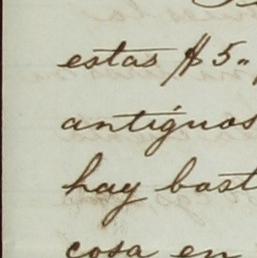 estas $5"
antiguos
hay bast
cosa en